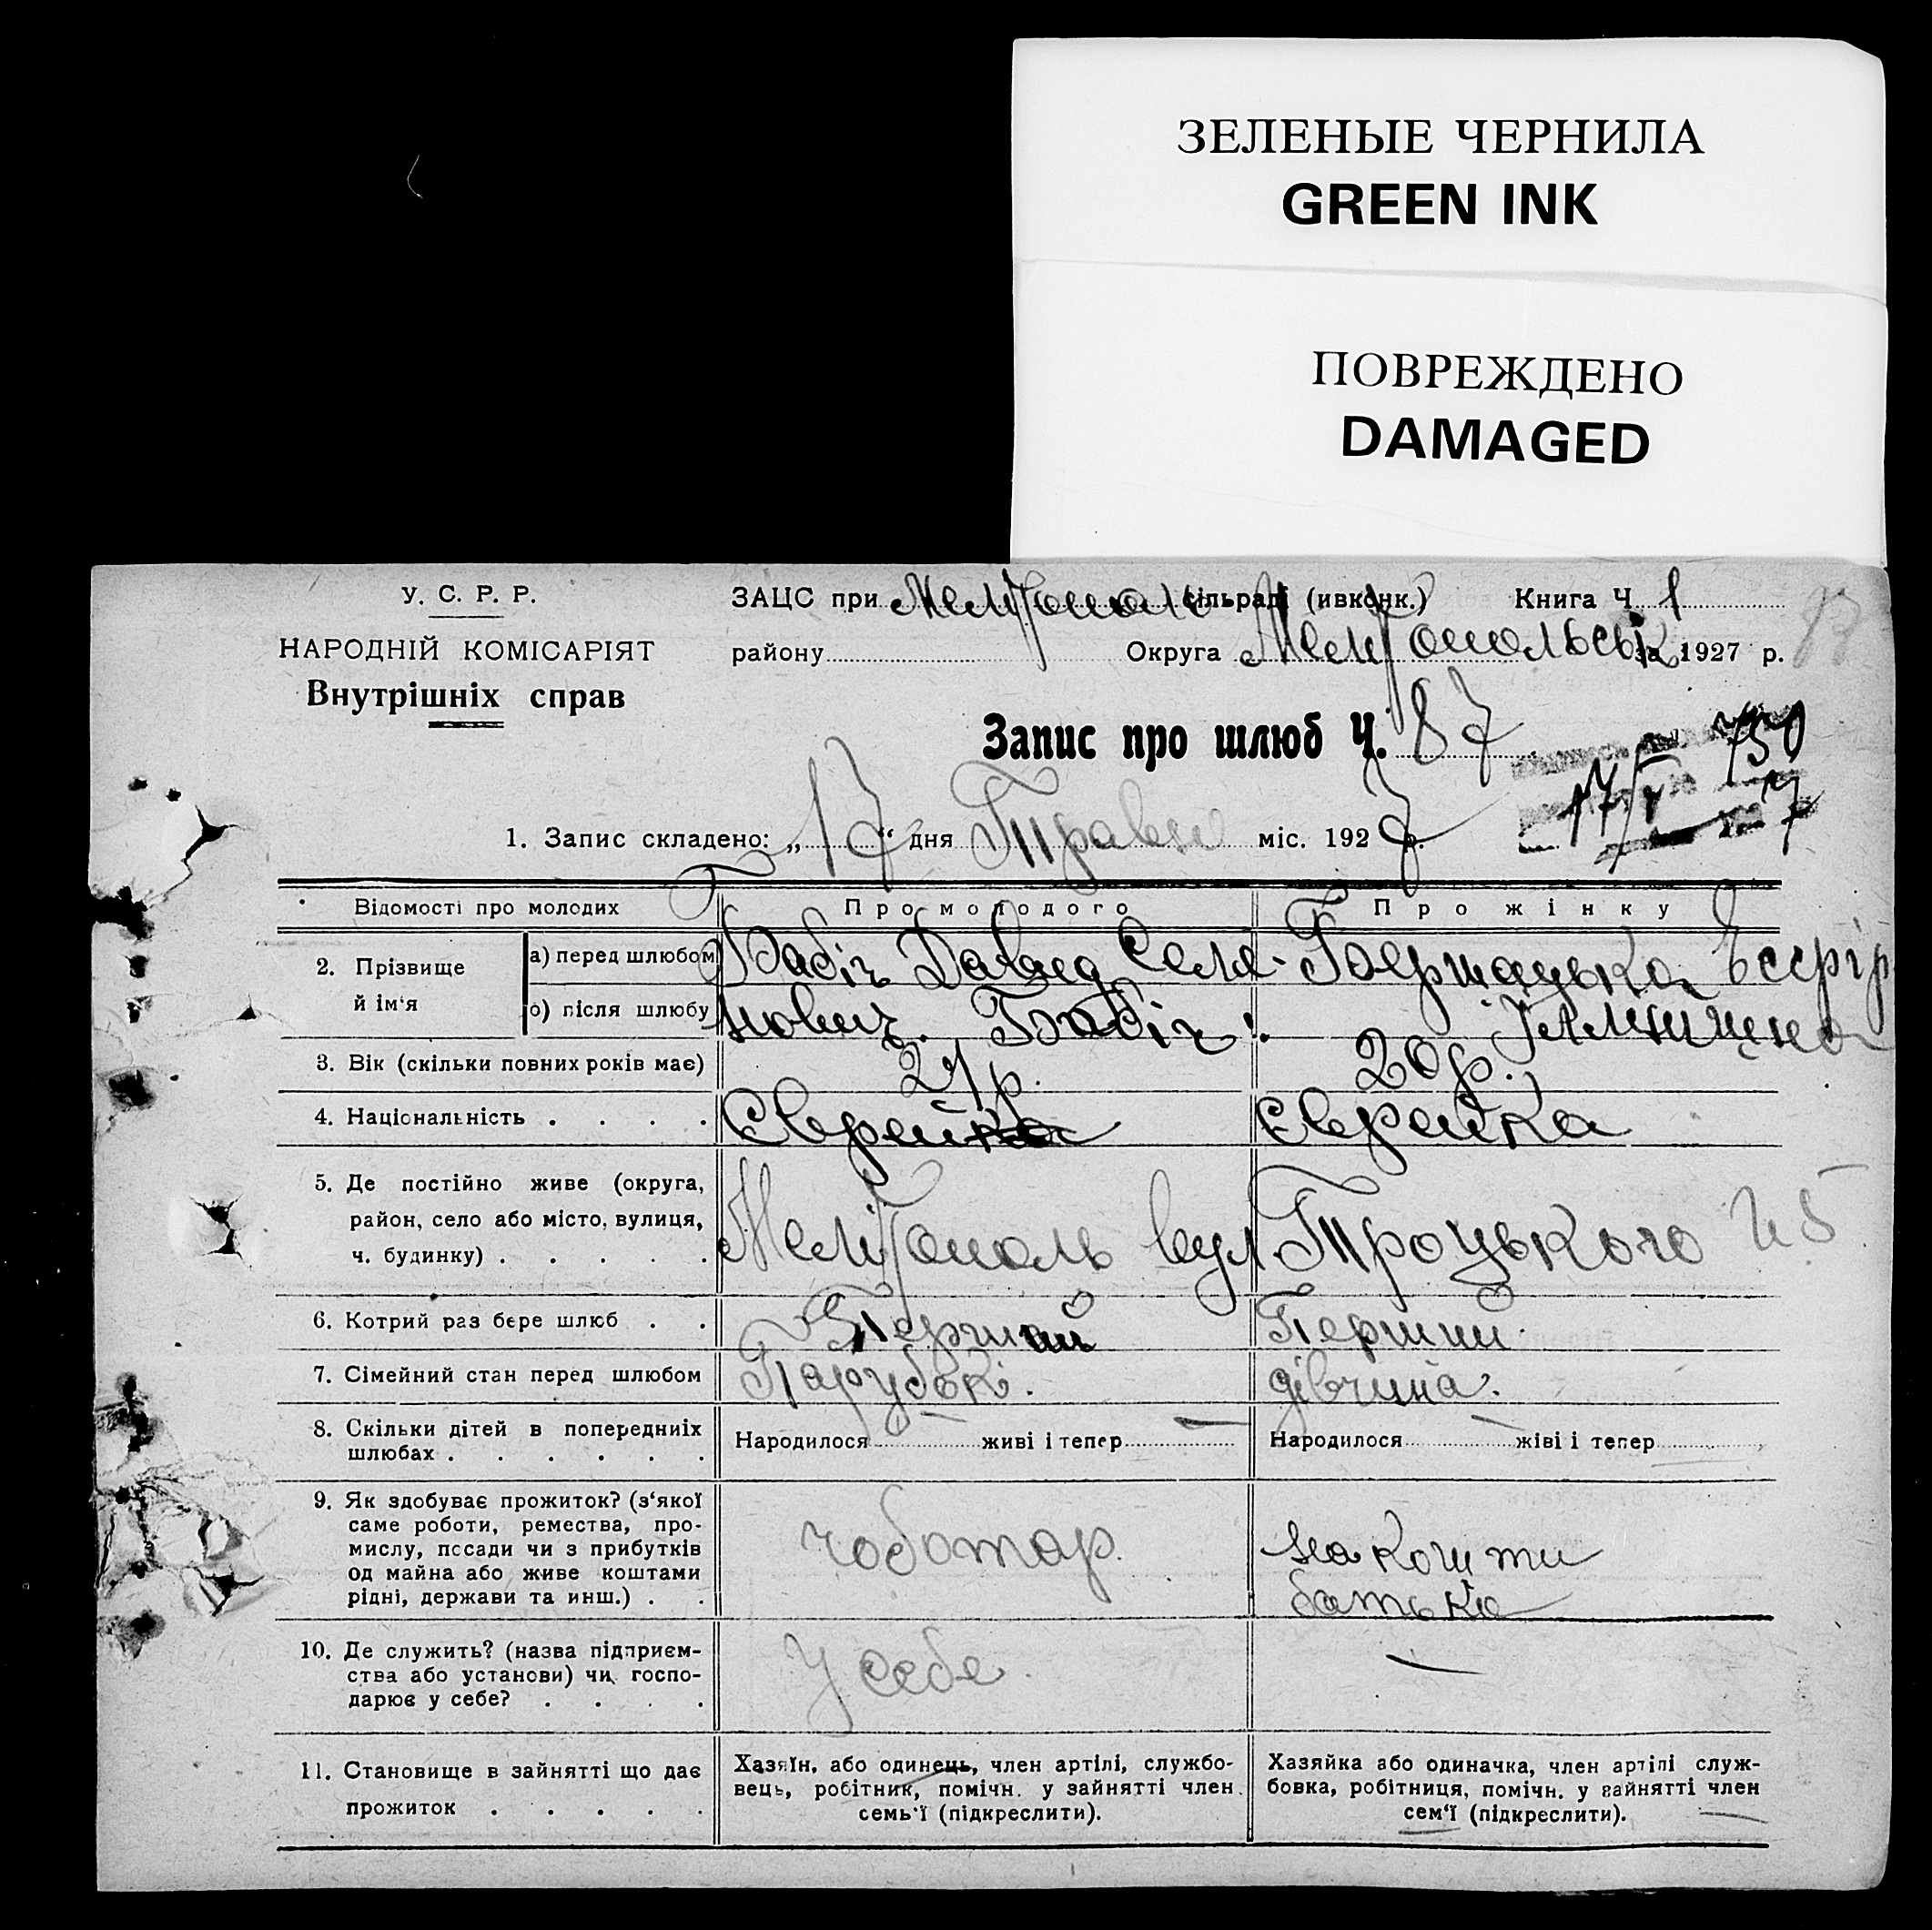 ЗЕЛЕНЫЕ ЧЕРНИЛА
GREEN INK
ПОВРЕЖДЕНО
DAMAGED
У. С. Р. Р.
НАРОДНІЙ КОМІСАРІЯТ
Внутрішніх справ
ЗАЦС при сільраді (ивконк.) Книга Ч. 1
району Округа Мелітопольськ за 1927 р.
Запис про шлюб Ч. 87
750
17/V 7
1. Запис складено: „17“ дня Травня міс. 1927 р.
Відомості про молодих Про молодого Про жінку
2. Прізвище й ім‘я
а) перед шлюбом Бабіч Давид Селя-
б) після шлюбу мович. Бабіч!.
3. Вік (скільки повних років має) 21 р. 20 р.
4. Національність . . . . Єврей Єврейка
5. Де постійно живе (округа,
район, село або місто, вулиця,
ч. будинку) . . . . . Мелітополь вул Троцького
6. Котрий раз бере шлюб . . Перший Перший
7. Сімейний стан перед шлюбом Парубок. дівчина.
8. Скільки дітей в попередниіх
шлюбах . . . . . .
Народилося — живі і тепер —
Народилося — жіві і тепер
9. Як здобуває прожиток? (з‘якої
саме роботи, ремества, про-
мислу, посади чи з прибутків
од майна або живе коштами
рідні, держави та инш.) . .
чоботар.
на кошти
батька
10. Де служить? (назва підприєм-
ства або установи) чи госпо-
дарює у себе? . . . .
У себе.
—
11. Становище в зайнятті що дає
прожиток . . . . .
Хазяїн, або одинець, член артілі, службо-
вець, робітник, помічн. у зайнятті член
семь‘ї (підкреслити).
Хазяйка або одиначка, член артілі служ-
бовка, робітниця, помічн. у зайнятті член
сем‘ї (підкреслити).